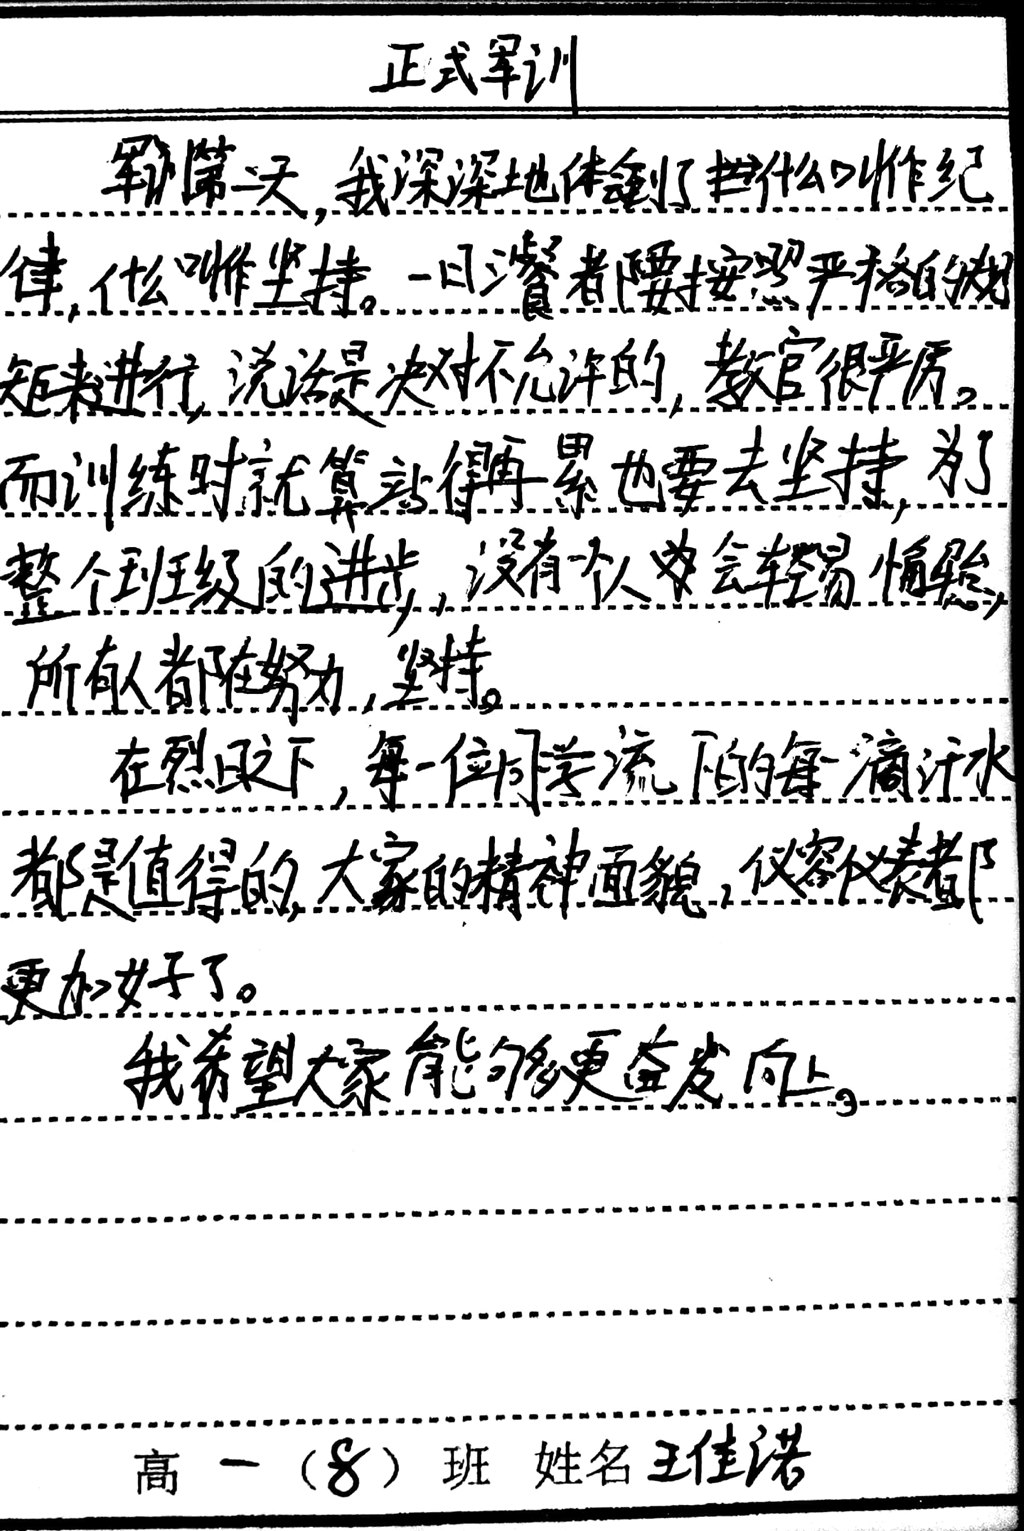 正式军训
军训第二天,我深深地体会到了什么叫作纪
律,什么叫作坚持。一日三餐都要按照严格的规
矩来进行,说话是决对不允许的,教官很严厉。
而训练时就算站得再累也要去坚持,为了
整个班级的进步,没有一个人会轻易懈怠,
所有人都在努力,坚持。
在烈日之下,每一位同学流下的每一滴汗水
都是值得的,大家的精神面貌,仪容仪表都
更加好了。
我希望大家能够更奋发向上。
高一(8)班 姓名王佳诺